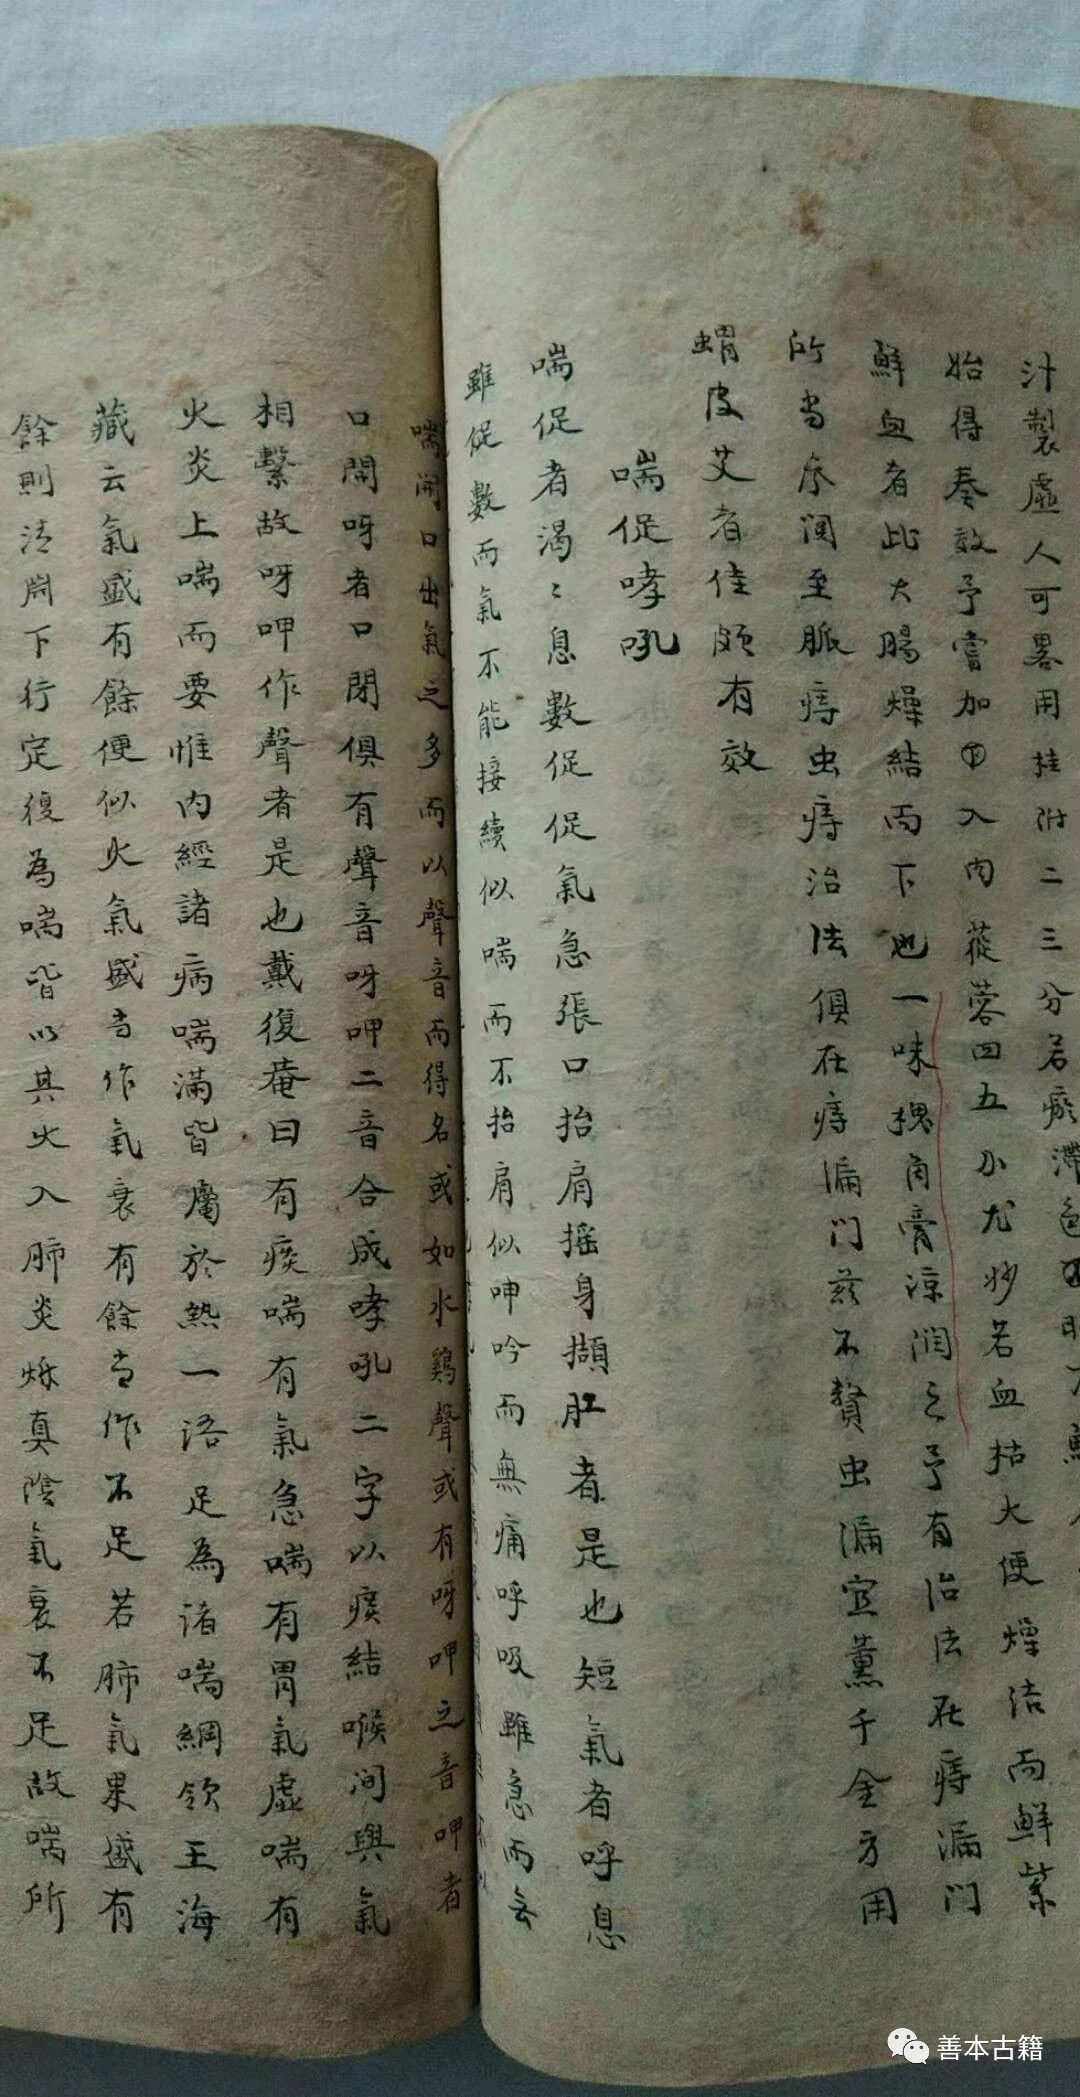 汁製虛人可畧用桂附二三分若瘀滯色
始得奏效予嘗加入肉蓯蓉四五尤妙若血枯大便燥洁而鮮紫
鮮血者此大腸燥結而下也一味槐角膏涼潤之予有治法在痔漏門
所當序闊至脈痔虫痔治法俱在痔漏门茲不贅虫漏宜薰千金方用
蝟皮艾者佳頗有效
喘促哮吼
喘促者濁〻息數促促氣急張口抬肩摇身擷肚者是也短氣者呼息
雖促數而氣不能接續似喘而不抬肩似呻吟而無痛呼吸雖急而去
喘開口出氣之多而以聲音而得名或如水鷄聲或有呀呷之音呷者
口開呀者口閉俱有聲音呀呷二音合成哮吼二字以痰結喉间與氣
相繫故呀呷作聲者是也戴復菴曰有痰喘有氣急喘有胃氣虛喘有
火炎上喘而要惟內經諸病喘滿皆屬於熱一语足為诸喘綱领王海
藏云氣盛有餘便似火氣盛当作氣衰有餘当作不足若肺氣果盛有
餘則清肅下行定復為喘皆以其火入肺炎烁真陰氣衰不足故喘所
善本古籍